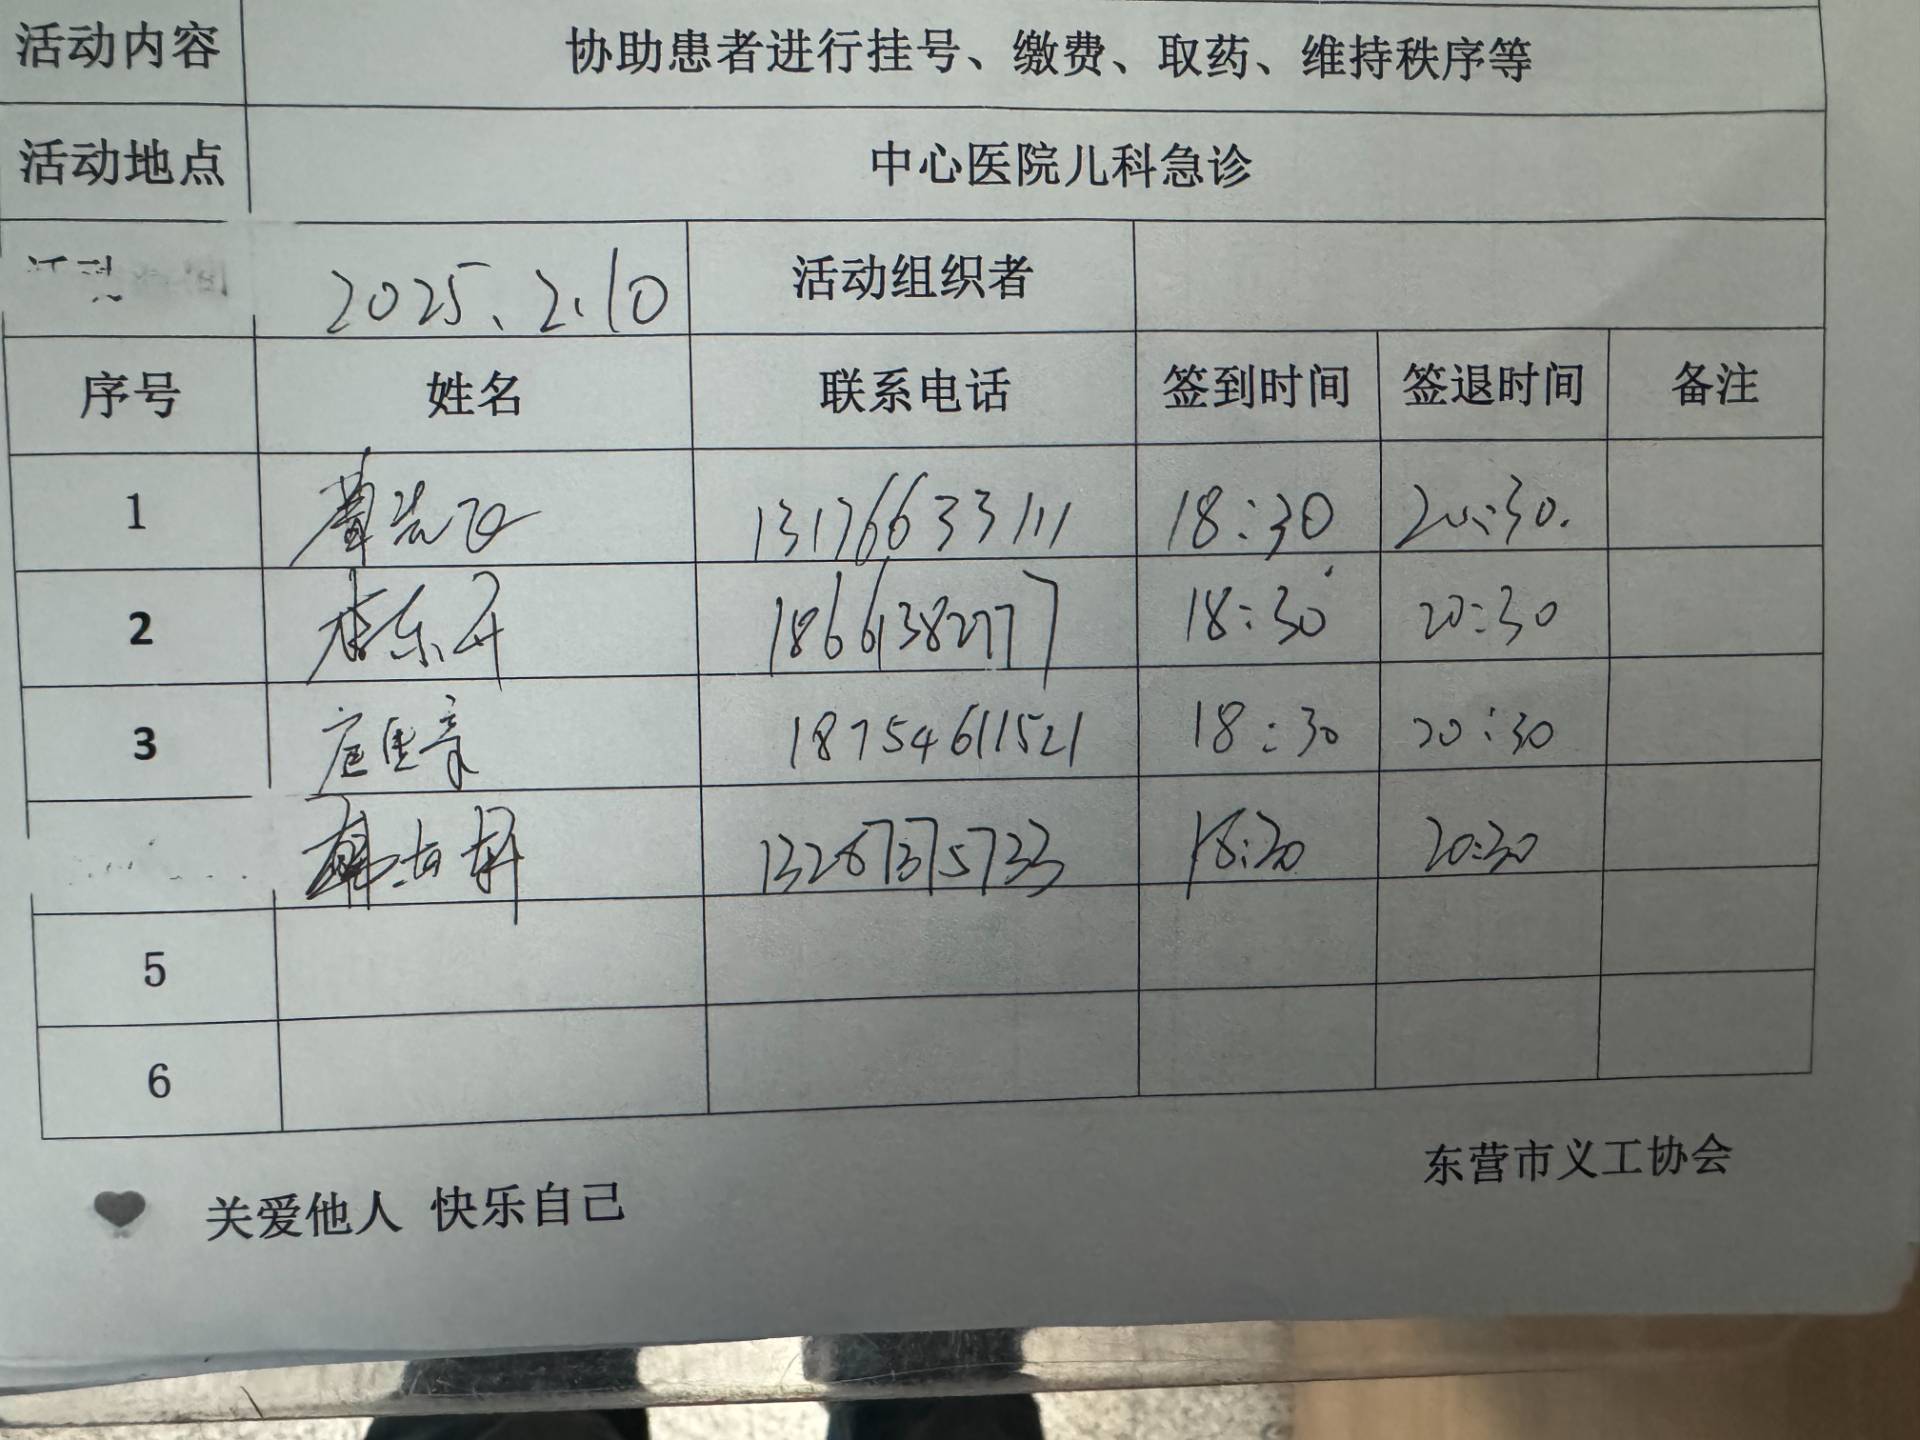 活动内容 协助患者进行挂号、缴费、取药、维持秩序等
活动地点 中心医院儿科急诊
2025.2.10 活动组织者
序号 姓名 联系电话 签到时间 签退时间 备注
1 13176633111 18:30 20:30.
2 18661382777 18:30 20:30
3 18754611521 18:30 20:30
13287375733 18:30 20:30
5
6
东营市义工协会
关爱他人 快乐自己